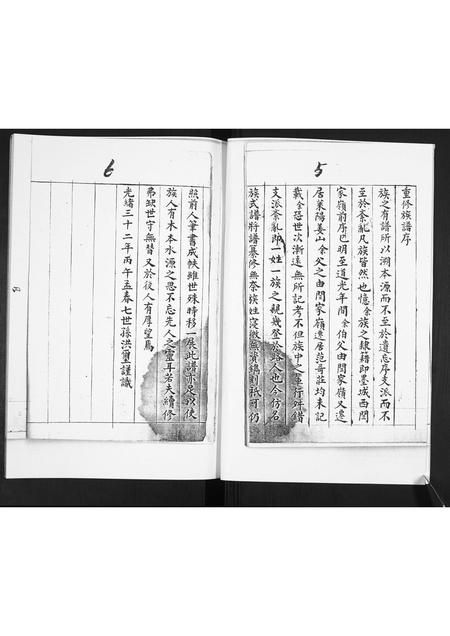 5
重修族譜序
族之有譜所以溯本源而不至於遺忘序支派而不
至於紊亂凡族皆然也憶余族之隸籍即墨城西閆
家嶺前序已明至道光年間余伯父由閆家嶺又遷
居萊陽姜山余父之由閆家嶺遷居范哥莊均未記
載余恐世次漸遠無所記考不但族中之 行所錯
支派紊亂即一姓一族之親幾登於路人也今仿名
族式譜將譜纂修無奈族姓寖微無資鐫刻祇可仍
6
照前人筆書成帙雖世殊時移一展此譜亦足以使
族人有木本水源之思不忘先人之靈耳若夫續修
弗缺世守無替又於後人有厚望焉
光緒三十二年丙午孟春七世孫洪璽謹識